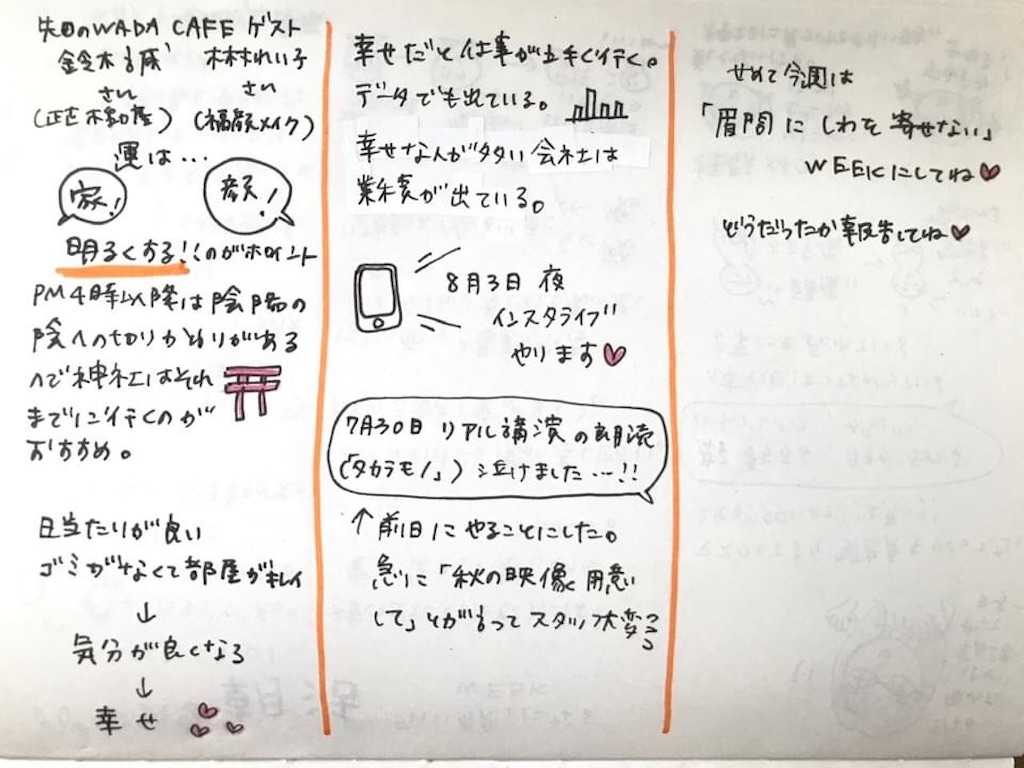 先日のWADA CAFE ゲスト
鈴木 さん 木村れい子 さん
(正吉不動産) (福顔メイク)
運は…
家! 顔!
明るくする!!のがポイント
PM4時以降は陰陽の
陰への切りかわりがある
ので神社はそれ
までに行くのが
おすすめ。
日当たりが良い
ゴミがなくて部屋がキレイ
↓
気分が良くなる
↓
幸せ
幸せだと仕事が上手く行く。
データでも出ている。
幸せな人が多い会社は
業績が出ている。
8月3日 夜
インスタライブ
やります
7月30日 リアル講演の朗読
(「タカラモノ」)泣けました…!!
↑前日にやることにした。
急に「秋の映像用意
して」とか言ってスタッフ大変
せめて今週は
「眉間にしわを寄せない」
WEEKにしてね
どうだったか報告してね